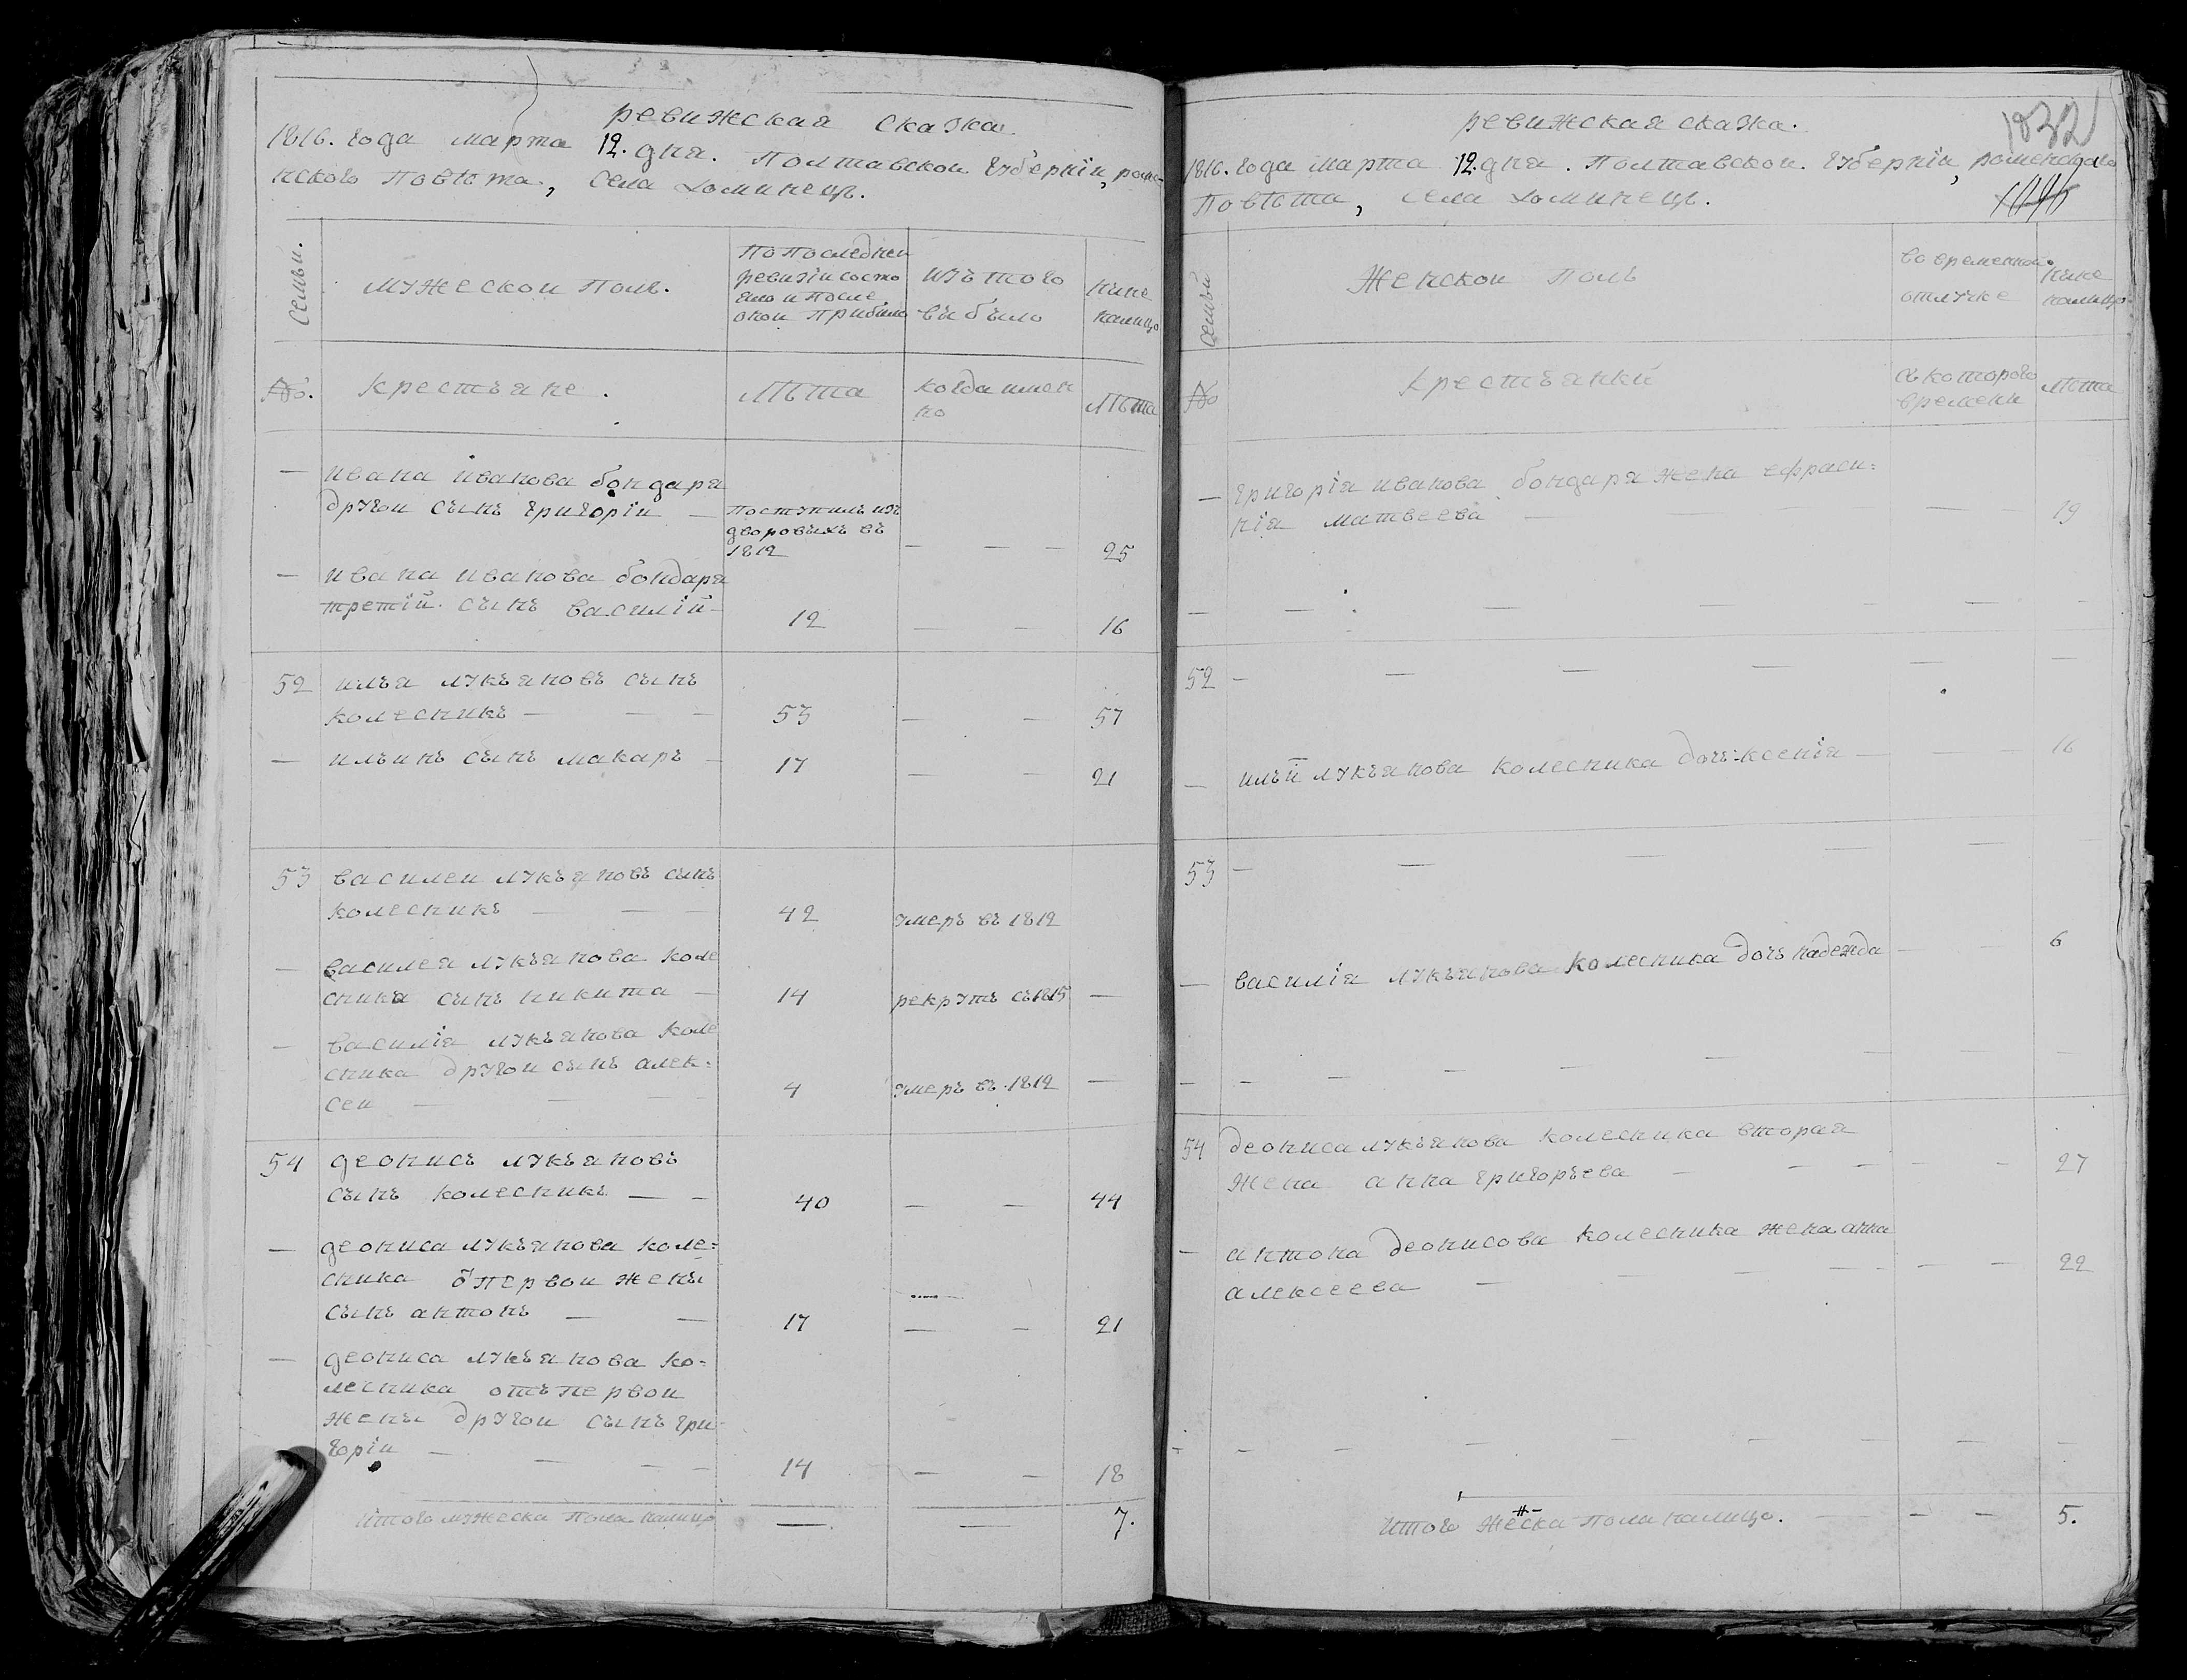 ревижская сказка.
1816. года марта 12. дня. Полтавской губернiи, роме-
нского повѣта, села хоминецъ.
Семьи.
мужеской полъ.
По последней
ревизiи состо
яло и после
оной прибыло
изъ того
выбыло
ныне
налицо
№.
крестьяне.
Лѣта
когда имен
но
Лѣта
— ивана иванова бондаря
другой сынъ григорiй —
поступилъ изъ
дворовыхъ въ
1812
— — — 25
— ивана иванова бондаря
третiй сынъ василiй — 12 — — 16
52 илья лукьяновъ сынъ
колесникъ — — — 53 — — 57
— ильинъ сынъ макаръ — 17 — — 21
53 василей лукьяновъ сынъ
колесникъ — — — 42 умеръ въ 1812
— василея лукьянова коле
сника сынъ никита — 14 рекрутъ съ 1815 —
— василiя лукьянова коле
сника другой сынъ алек=
сей — — — 4 умеръ въ 1812 —
54 деонисъ лукьяновъ
сынъ колесникъ — — 40 — — 44
— деониса лукьянова коле=
сника ѿ первой жены
сынъ антонъ — — 17 — — 21
— деониса лукьянова ко=
лесника отъ первой
жены другой сынъ гри-
горiй — — — — 14 — — 18
итого мужеска пола налицо — — 7.
ревижская сказка.
1832
1816. года марта 12. дня. Полтавской. губернiи, роменского
повѣта, села хоминецъ.
Семьи
Женской полъ
во временной
отлучке
ныне
налицо
№
крестьянки
съ которого
времени
Лѣта
— григорiя иванова бондаря жена ефраси=
нiя матвеева — — — — 19
— — — — — — —
52 — — — — — —
— ильи лукьянова колесника дочь ксенiя — — — 16
53 — — — — — —
— василiя лукьянова колесника дочь надежда — — 6
— — — — — — — — —
54 деониса лукьянова колесника вторая
жена анна григорьева — — — — — 27
— антона деонисова колесника жена анна
алексеева — — — — — — 22
— — — — — — — —
итого женска пола налицо. — — — 5.